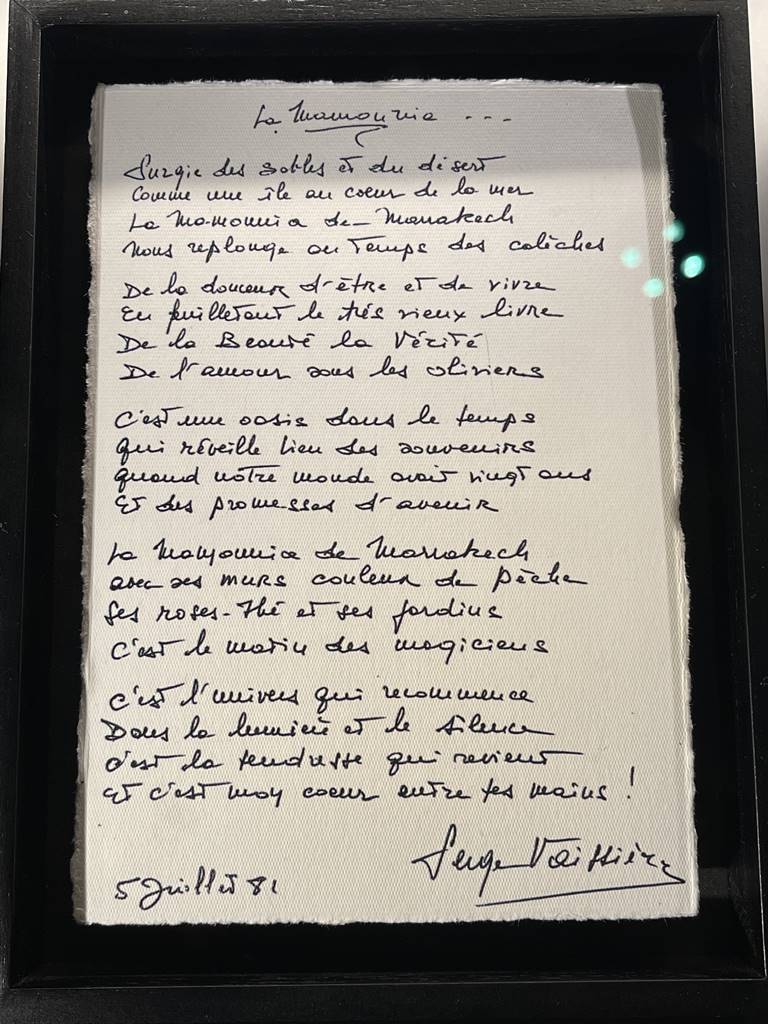 La Mamounia ...
Surgie des sables et du désert
Comme une île au coeur de la mer
La Mamounia de Marrakech
Nous replonge au temps des calèches
De la douceur d'être et de vivre
En feuilletant le très vieux livre
De la Beauté la Vérité
De l'amour sous les oliviers
C'est une oasis dans le temps
Qui réveille bien des souvenirs
Quand notre monde avait vingt ans
Et des promesses d'avenir
La Mamounia de Marrakech
avec ses murs couleur de pêche
Ses roses-thé et ses jardins
C'est le matin des magiciens
C'est l'univers qui recommence
Dans la lumière et le silence
C'est la tendresse qui revient
Et c'est mon coeur entre tes mains !
Serge Vaissière
5 Juillet 81